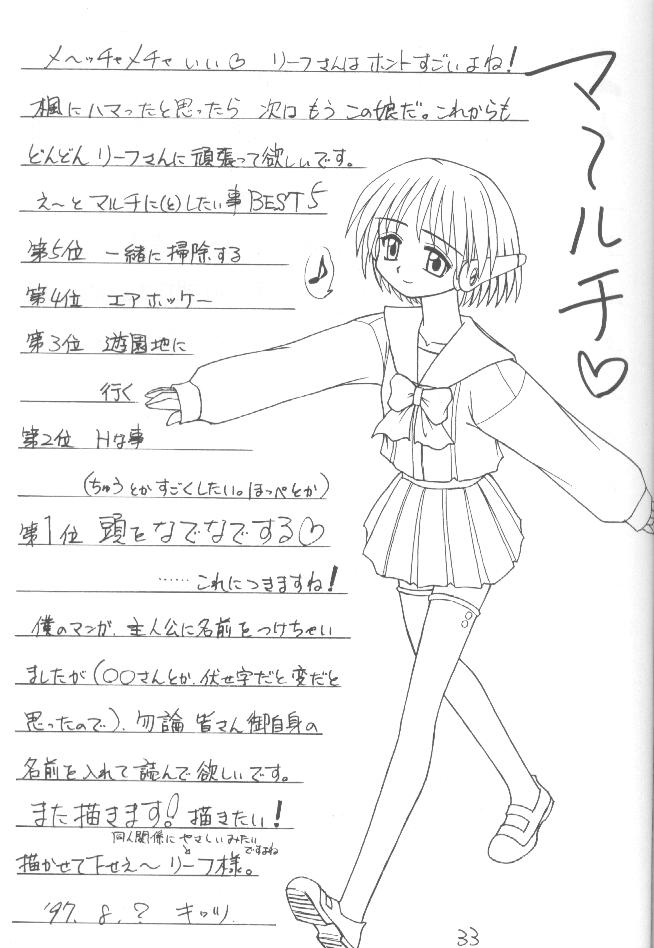 マルチ♡
メ〜ッチャメチャ いい♡ リーフさんは ホントすごいよね!
楓にハマったと思ったら 次は もう この娘だ。これからも
どんどん リーフさんに 頑張って欲しいです。
え〜と マルチに(と)したい事 BEST5
第5位 一緒に掃除する
第4位 エアホッケー
第3位 遊園地に
行く
第2位 Hな事
(ちゅうとかすごくしたい。ほっぺとか)
第1位 頭をなでなでする♡
……これにつきますね!
僕のマンガ、主人公に名前をつけちゃい
ましたが(○○さんとか、伏せ字だと変だと
思ったので)、勿論 皆さん御自身の
名前を入れて読んで欲しいです。
また描きます! 描きたい!
同人関係に やさしいみたい
ですよね
描かせて下せえ〜 リーフ様。
'97. 8. ? キッツ
♪
33